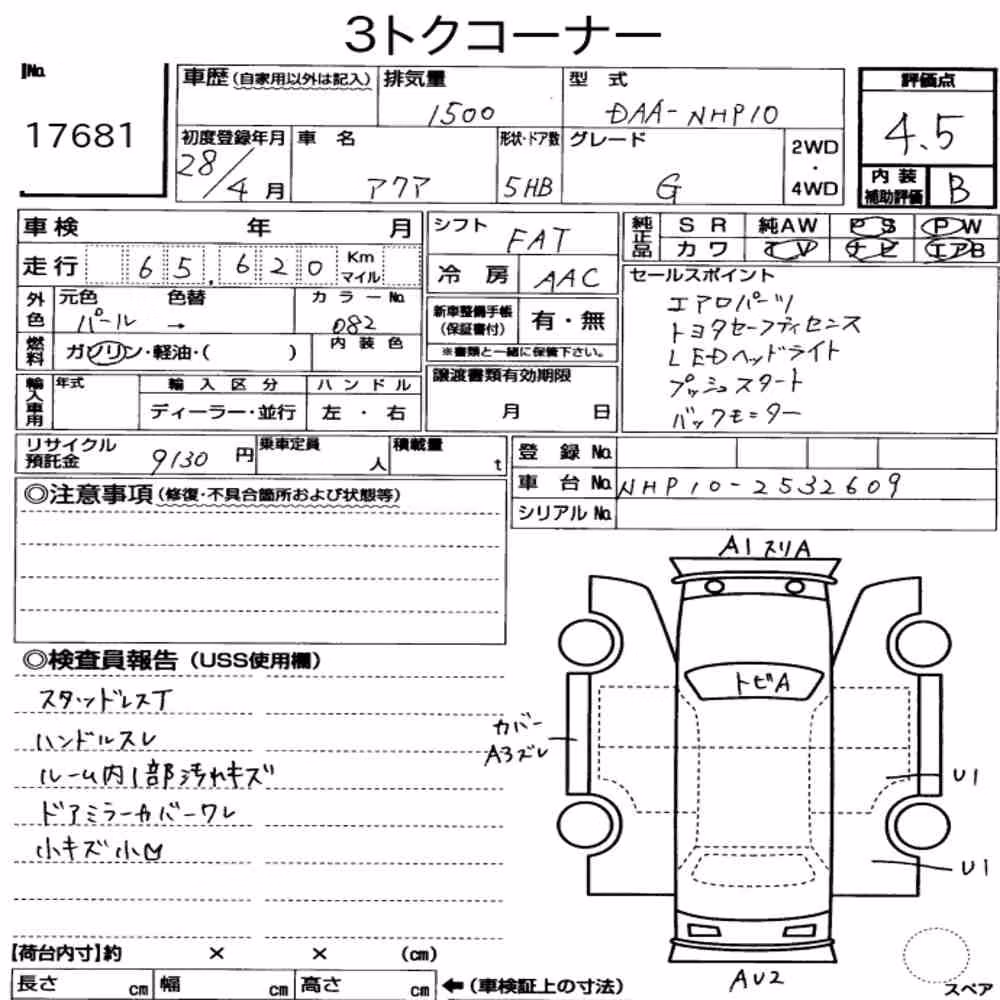 3トクコーナー
No. 17681
車歴(自家用以外は記入) 排気量 1500 型式 DAA-NHP10 評価点 4.5
初度登録年月 28/4月 車名 アクア 形状・ドア数 5HB グレード G 2WD・4WD 内装補助評価 B
車検 年 月
走行 65,620 Km マイル
外色 元色 パール 色替 → カラーNo. 082
燃料 ガソリン・軽油・( ) 内装色
輸入車用 年式 輸入区分 ディーラー・並行 ハンドル 左・右
シフト FAT
冷房 AAC
新車整備手帳(保証書付) 有・無
※書類と一緒に保管下さい。
譲渡書類有効期限
月 日
純正品 SR 純AW PS PW
カワ TV ナビ エアB
セールスポイント
エアロパーツ
トヨタセーフティセンス
LEDヘッドライト
プッシュスタート
バックモニター
リサイクル預託金 9130円 乗車定員 人 積載量 t
登録No.
車台No. NHP10-2532609
シリアルNo.
◎注意事項(修復・不具合箇所および状態等)
◎検査員報告(USS使用欄)
スタッドレスT
ハンドルスレ
ルーム内1部汚れキズ
ドアミラーカバーワレ
小キズ小凹
A1スリA
トビA
カバー
A3ズレ
U1
U1
AU2
スペア
【荷台内寸】約 × × (cm)
長さ cm 幅 cm 高さ cm ←(車検証上の寸法)